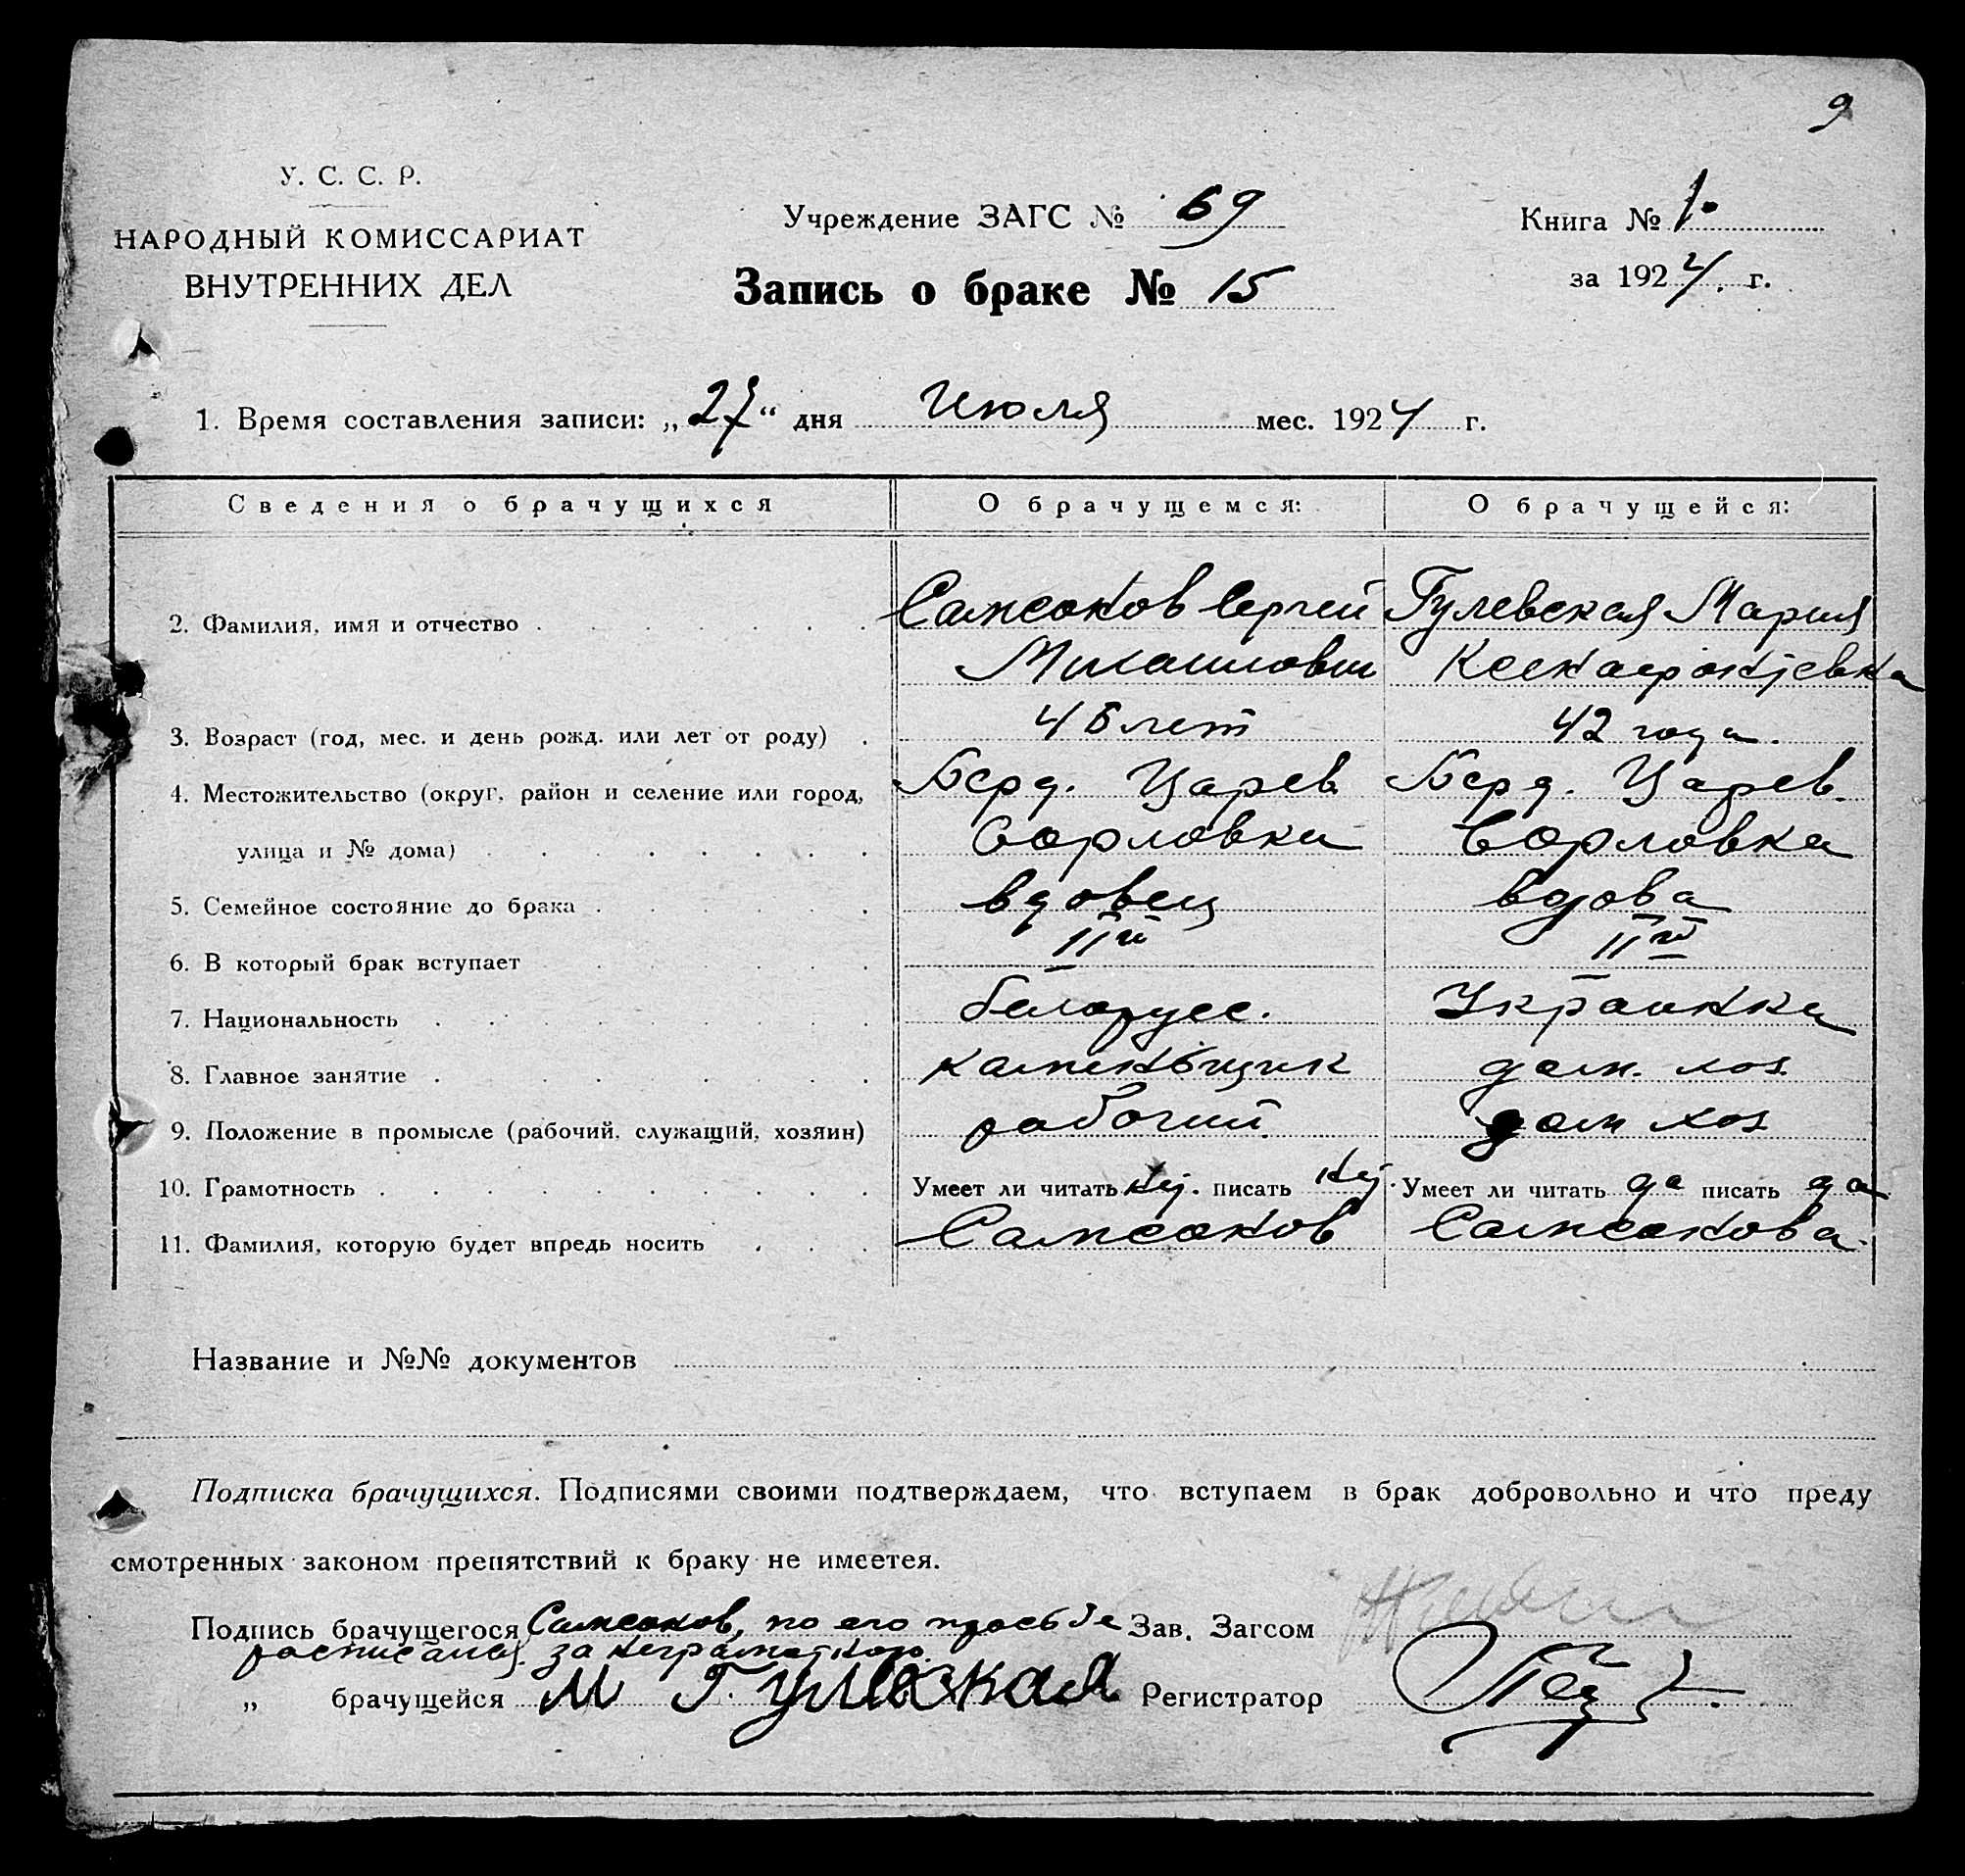 9
У. С. С. Р.
НАРОДНЫЙ КОМИССАРИАТ
ВНУТРЕННИХ ДЕЛ
Учреждение ЗАГС № 69
Запись о браке № 15
Книга № 1
за 1924 г.
1. Время составления записи: „27“ дня Июля мес. 1924 г.
Сведения о брачущихся О брачущемся: О брачущейся:
2. Фамилия, имя и отчество Самсонов Сергей Гулевская Мария
Михайлович
3. Возраст (год, мес. и день рожд. или лет от роду) лет 42 года.
4. Местожительство (округ, район и селение или город, Берд. Царев. Берд. Царев.
улица и № дома)
5. Семейное состояние до брака вдовец вдова
6. В который брак вступает IIй IIй
7. Национальность белорусс. Украинка
8. Главное занятие каменьщик дом. хоз.
9. Положение в промысле (рабочий, служащий, хозяин) рабочий дом хоз
10. Грамотность Умеет ли читать нет. писать нет. Умеет ли читать да писать да
11. Фамилия, которую будет впредь носить Самсонов Самсонова.
Название и №№ документов
Подписка брачущихся. Подписями своими подтверждаем, что вступаем в брак добровольно и что преду
смотренных законом препятствий к браку не имеетея.
Подпись брачущегося Самсонов, по его просьбе Зав. Загсом
расписалась за неграмотного.
„ брачущейся М Гулевская Регистратор